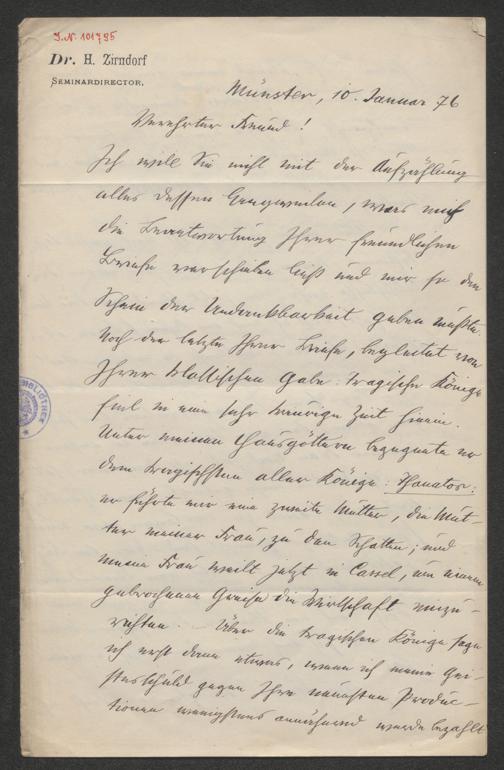 J.N. 101795
Dr. H. Zirndorf
SEMINARDIRECTOR.
Münster, 10. Januar 76
Verehrter Freund!
Ich will Sie nicht mit der Aufzählung
alles dessen, was mich
die Beantwortung Ihrer freundlichen
Briefe verschieben ließ und mir so den
Schein der Undankbarkeit geben mußte.
Noch der letzte Ihrer Briefe, begleitet von
Ihrer Gabe: tragische Könige
fiel in eine sehr traurige Zeit hinein.
Unter meinen Hausgöttern begegnete er
dem tragischsten aller Könige: Thanatos:
er führte mir eine zweite Mutter, die Mut-
ter meiner Frau, zu den Schatten; und
meine Frau weilt jetzt in Cassel, um einem
gebrochenen Greise die Wirtschaft einzu-
richten. – Über die tragischen Könige sage
ich erst dann etwas, wenn ich meine Gei-
stesschuld gegen Ihre neuesten Produc-
tionen wenigstens annähernd werde bezahlt
BIBLIOTHEK